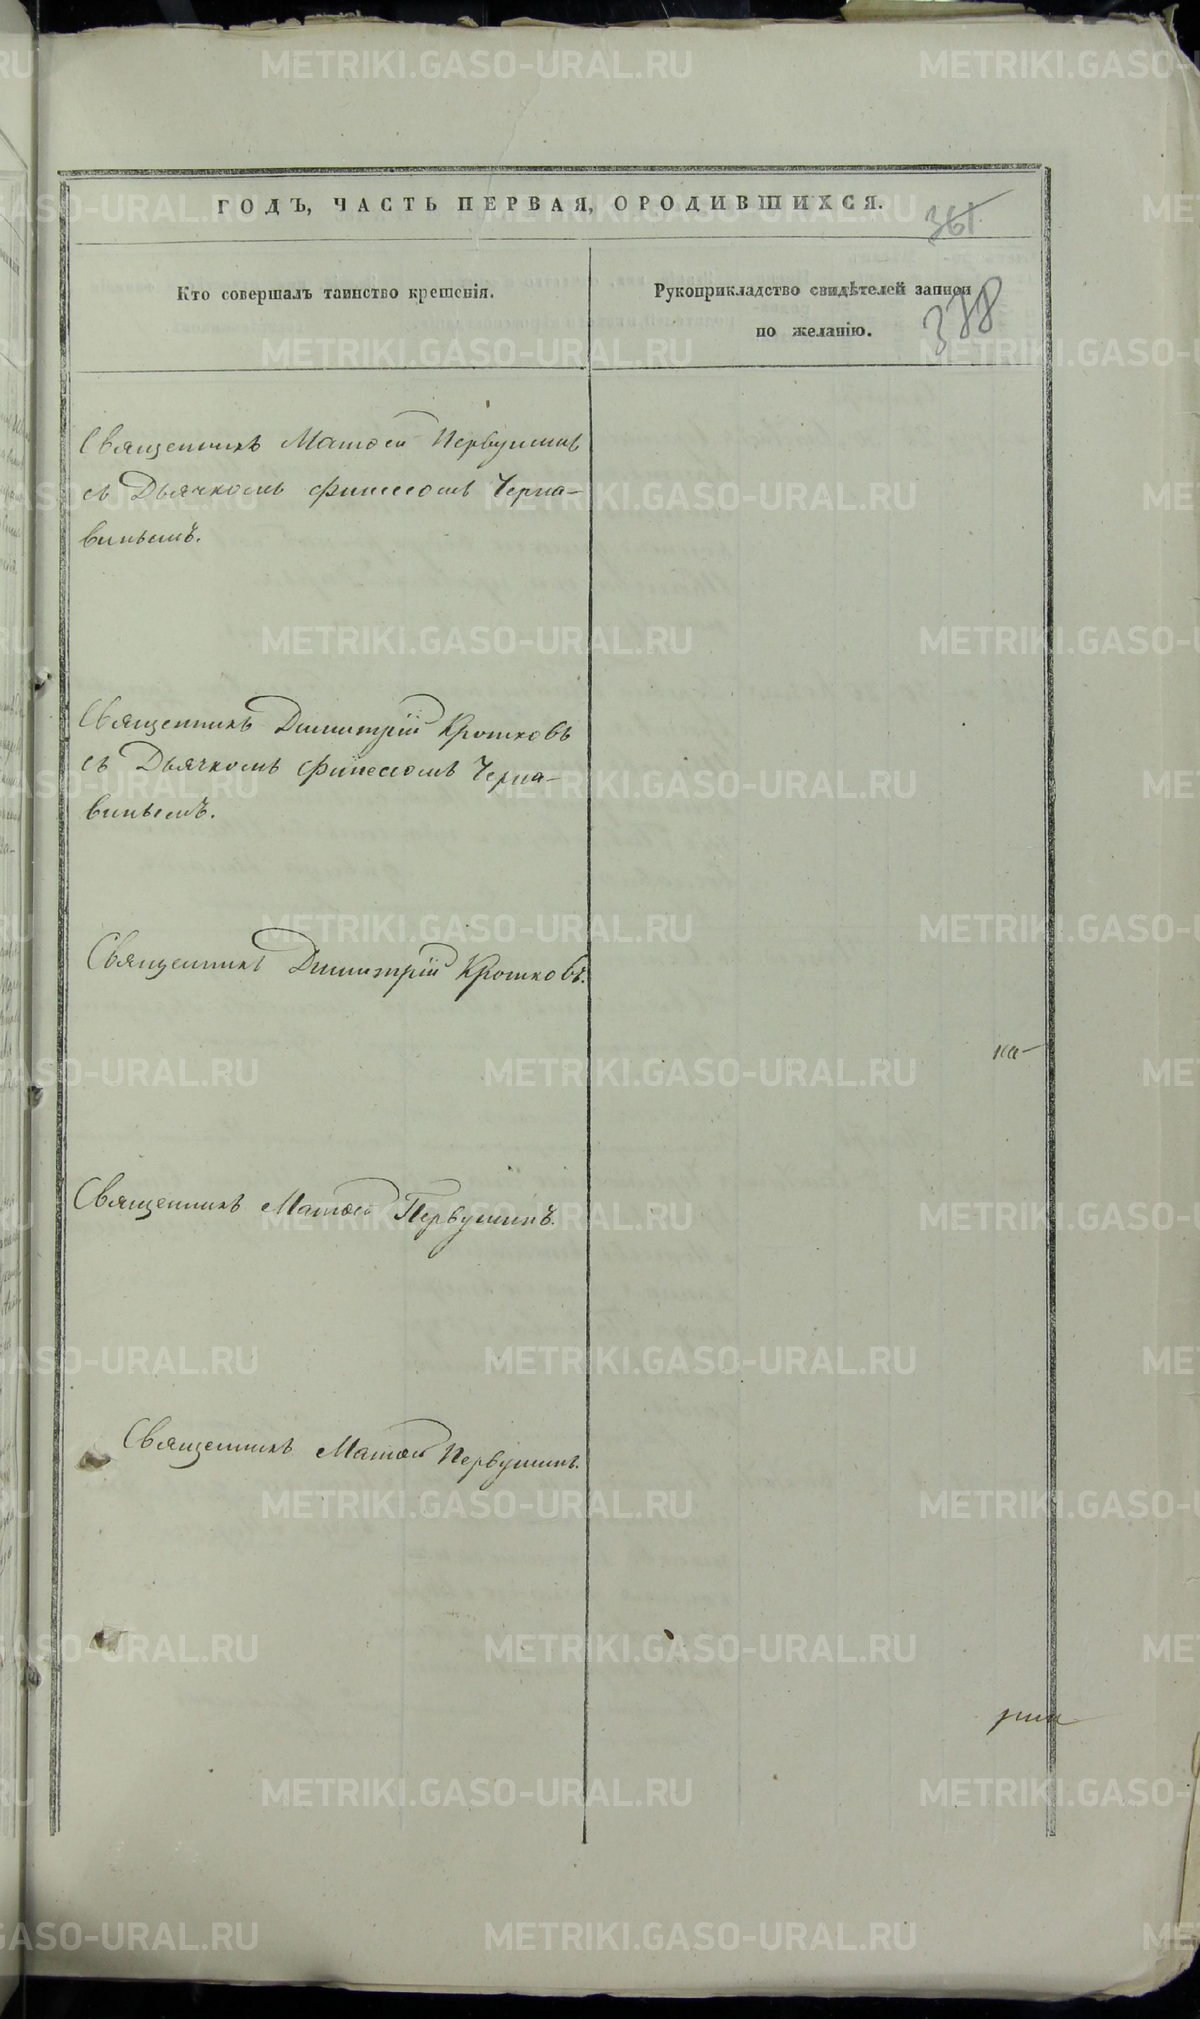 ГОДЪ, ЧАСТЬ ПЕРВАЯ, ОРОДИВШИХСЯ.
361.
Кто совершалъ таинство крещенія.
Рукоприкладство свидѣтелей записи
по желанію.
378
Священникъ Матѳей Первушинъ
съ Дьячкомъ Финеесомъ Черна-
виньемъ.
Священникъ Димитрій Кротковъ
съ Дьячкомъ Финеесомъ Черна-
виньемъ.
Священникъ Димитрій Кротковъ.
на-
Священникъ Матѳей Первушинъ.
Священникъ Матѳей Первушинъ.
METRIKI.GASO-URAL.RU